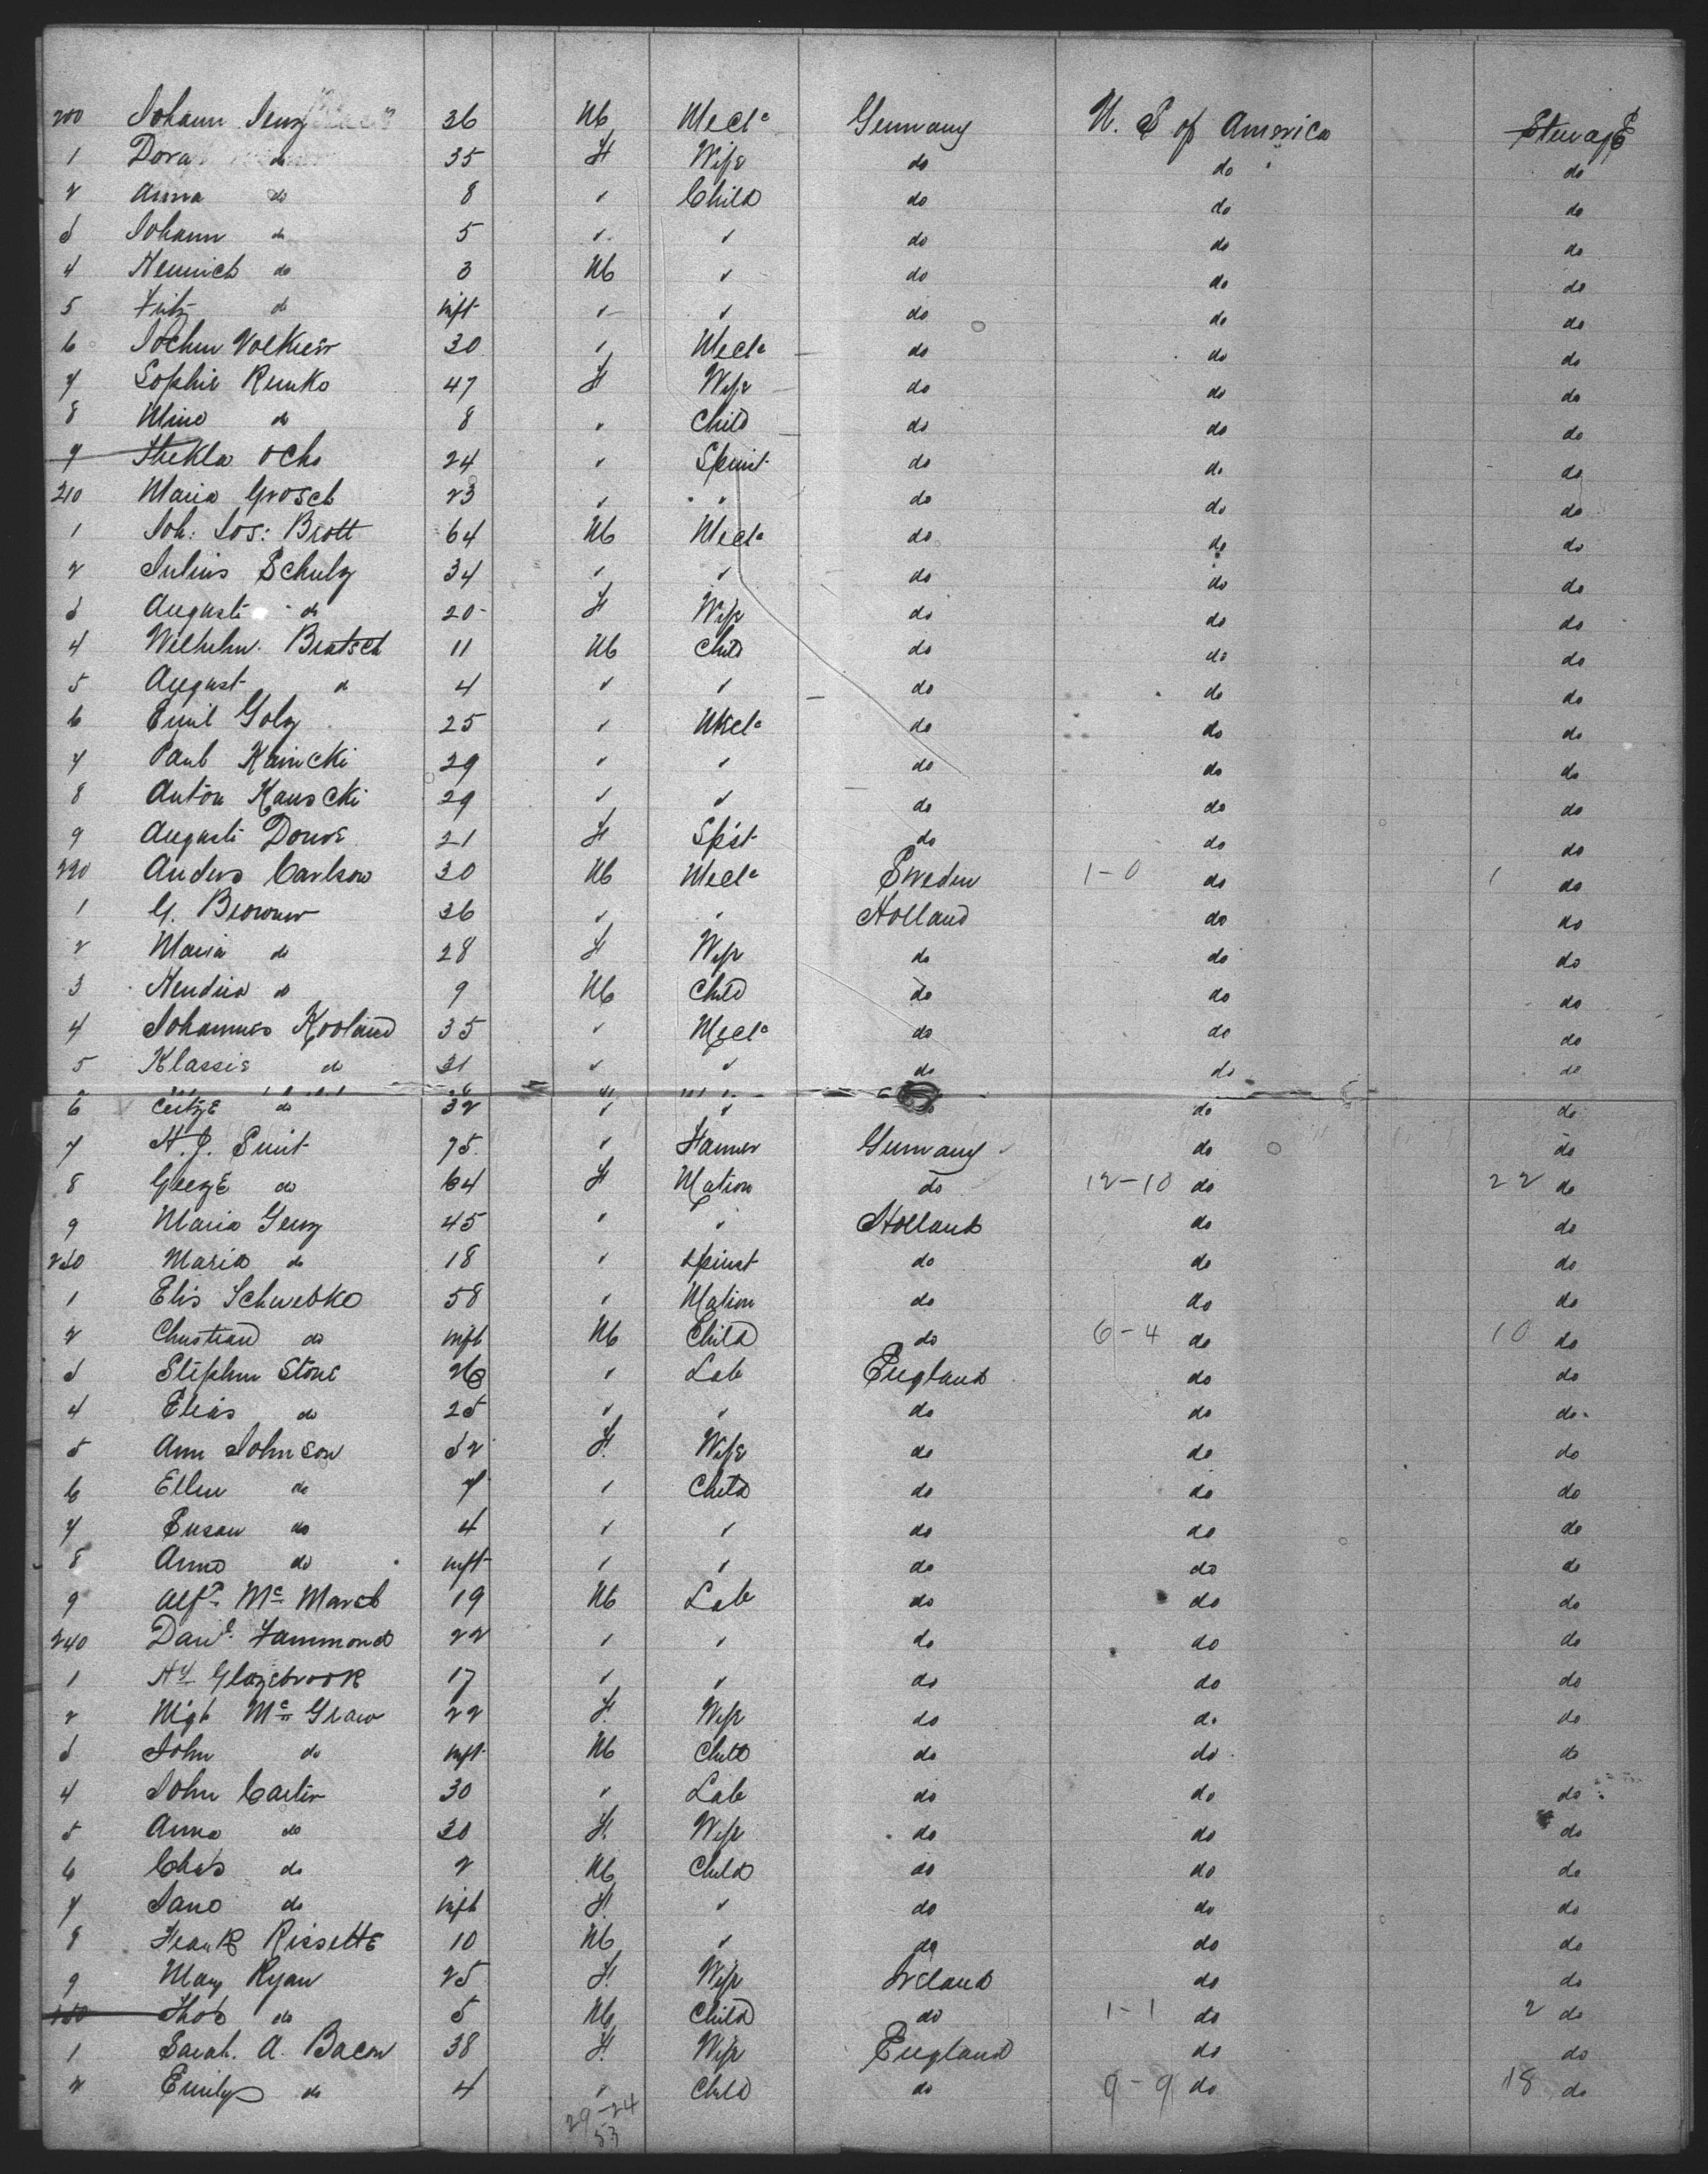 200 Johann Jenz 36 M Mecl^c Germany U. S of America Steerage
1 Dora do 35 F Wife do do do
2 Anna do 8 " Child do do do
3 Johann do 5 " " do do do
4 Heinrich do 3 M " do do do
5 Fritz do inft " " do do do
6 Jochim 30 " Mecl^c do do do
7 Sophie 47 F Wife do do do
8 Mine do 8 " Child do do do
9 Thekla Ochs 24 " Spinst do do do
210 Maria Grosch 23 " " do do do
1 Joh: Jos: Brott 64 M Mecl^c do do do
2 Julius Schulz 34 " " do do do
3 Auguste do 20 F Wife do do do
4 Wilhelm 11 M Child do do do
5 August do 4 " " do do do
6 Emil Golz 25 " Mecl^c do do do
7 Paul Kamcki 29 " " do do do
8 Anton 29 " " do do do
9 Auguste 21 F Spst do do do
220 Anders Carlson 30 M Mecl^c Sweden 1-0 do 1 do
1 G. Brouwer 36 " " Holland do do
2 Maria do 28 F Wife do do do
3 do 9 M Child do do do
4 Johannes 35 " Mecl^c do do do
5 Klassie do 31 " " do do do
6 do 32 " " do do do
7 H. J. Smit 75 " Farmer Germany do do
8 do 64 F Matron do 12-10 do 22 do
9 Maria 45 " " Holland do do
230 Maria do 18 " Spinst do do do
1 Elis Schwebke 58 " Matron do do do
2 Christian do inft M Child do 6-4 do 10 do
3 Stephen Stone 26 " Lab England do do
4 Elias do 25 " " do do do
5 Ann Johnson 32 F Wife do do do
6 Ellen do 7 " Child do do do
7 Susan do 4 " " do do do
8 Anna do inft " " do do do
9 Alf^d M^c March 19 M Lab do do do
240 Dan^l Hammond 22 " " do do do
1 H^y Glazebrook 17 " " do do do
2 Mgt M^c Graw 22 F Wife do do do
3 John do inft M Child do do do
4 John Carter 30 " Lab do do do
5 Anna do 30 F Wife do do do
6 Chas do 2 M Child do do do
7 Jane do inft F " do do do
8 Frank Rissette 10 M " do do do
9 Mary Ryan 25 F Wife Ireland do do
250 Thos do 5 M Child do 1-1 do 2 do
1 Sarah. A. Bacon 38 F Wife England do do
2 Emily do 4 " Child do 9-9 do 18 do
29-24
53